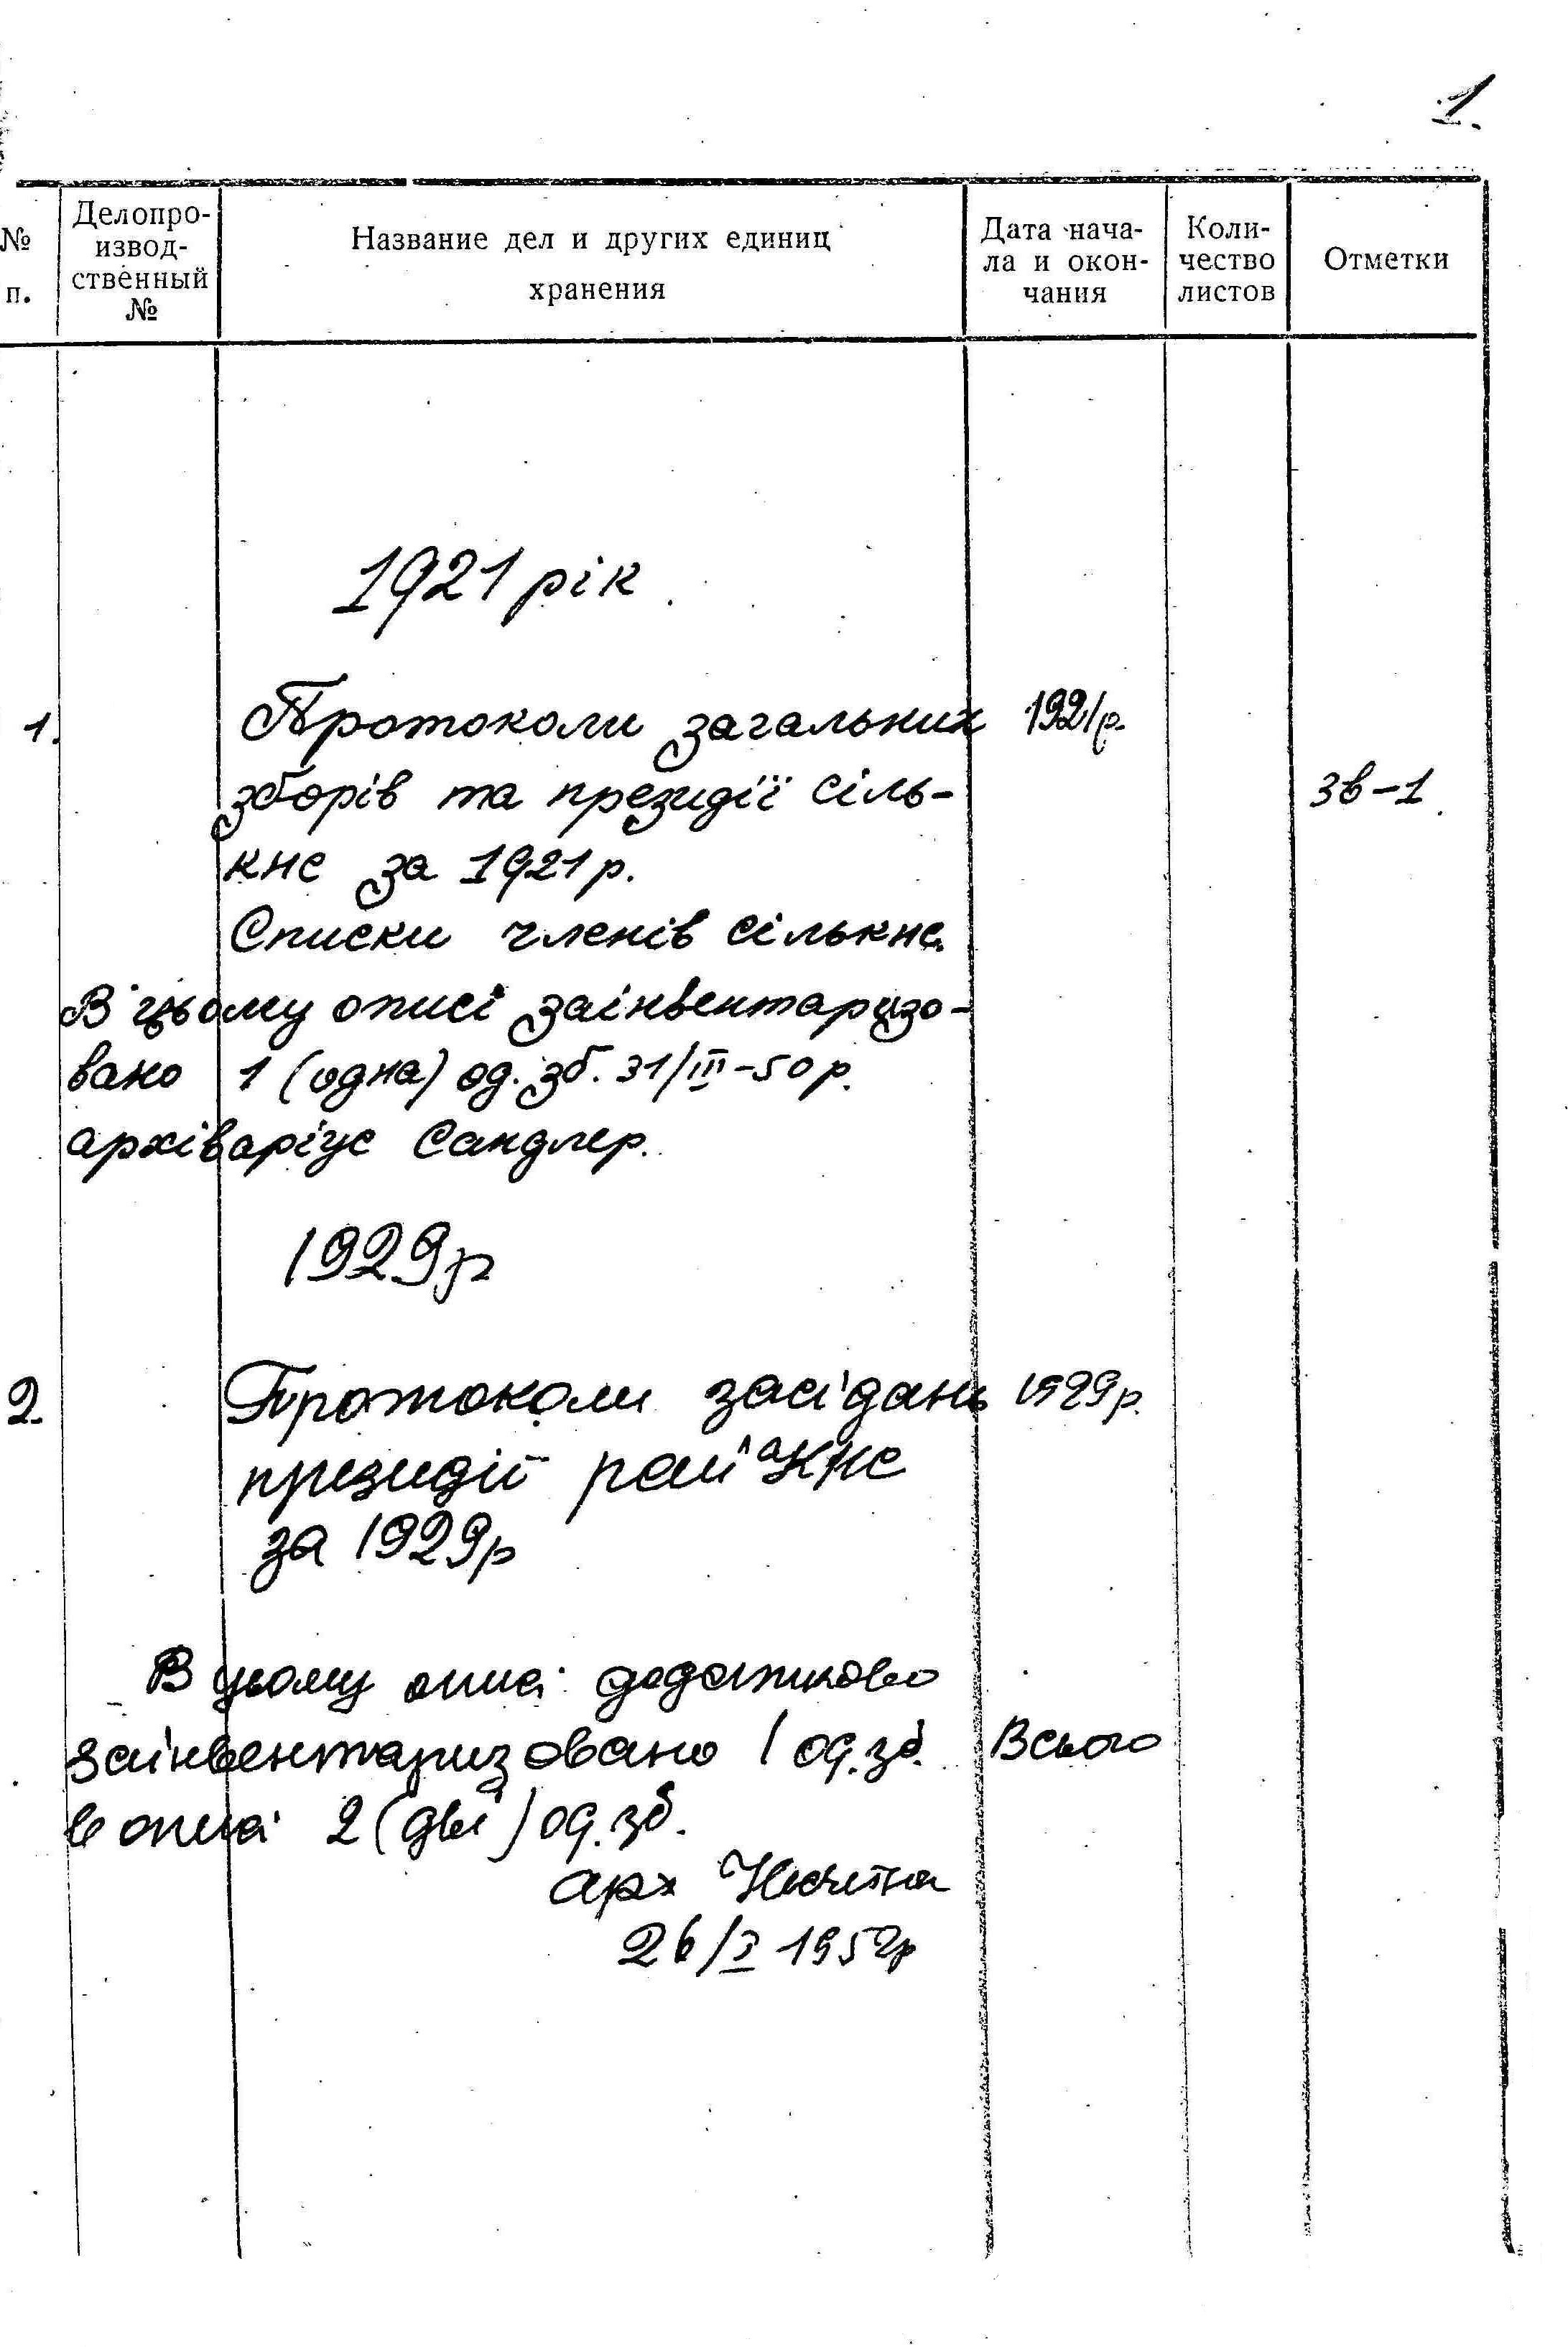 1.
№ п.
Делопро-
извод-
ственный
№
Название дел и других единиц
хранения
Дата нача-
ла и окон-
чания
Коли-
чество
листов
Отметки
1921 рік.
1. Протоколи загальних 1921р.
зборів та президії сіль-
кнс за 1921р. Зв-1
Списки членів сількнс
В цьому описі заінвентаризо-
вано 1 (одна) од. зб. 31/III-50р.
архіваріус Сандлер.
1929р
2. Протоколи засідань 1929р.
президії КНС
за 1929р
В цьому описі додатково
заінвентаризовано 1 од. зб. Всього
в описі 2 (дві) од. зб.
арх
26/I 1952р